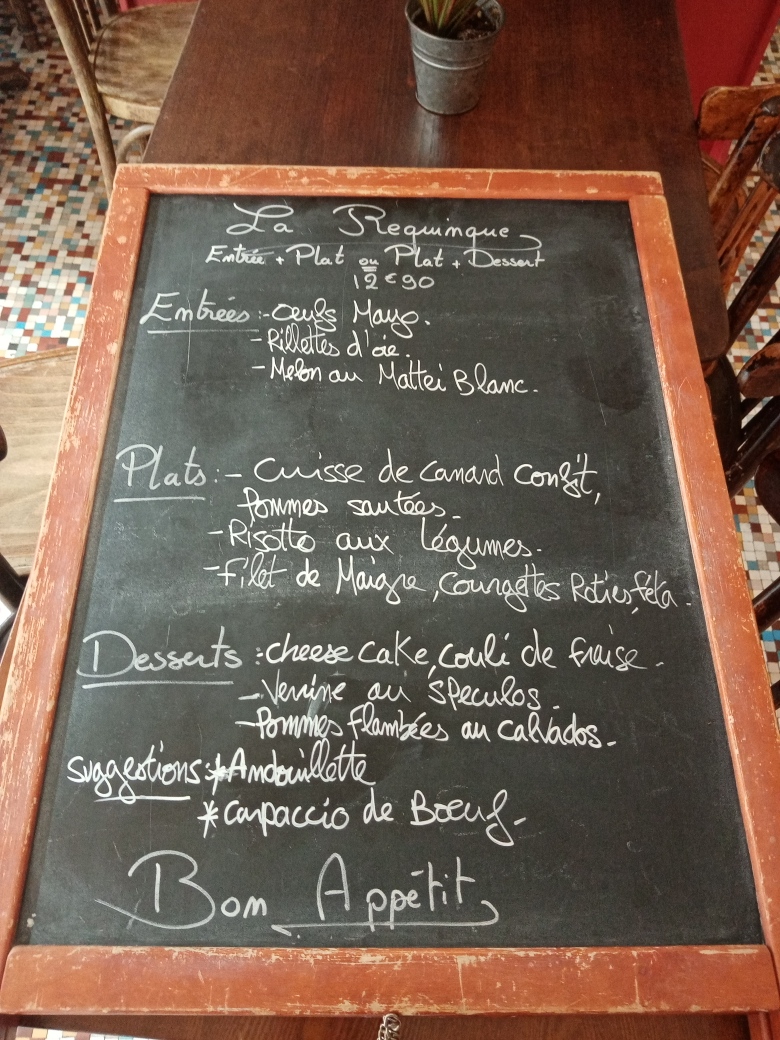 La Requinque
Entrée + Plat ou Plat + Dessert
12€90
Entrées :- Œufs Mayo.
- Rillettes d'oie.
- Melon au Mattei Blanc.
Plats :- Cuisse de canard confit,
Pommes sautées.
- Risotto aux légumes.
- Filet de Maigre, Courgettes Roties, féta.
Desserts : cheese cake, couli de fraise.
- Verrine au spéculos.
- Pommes flambées au calvados.
suggestions : * Andouillette
* Carpaccio de Bœuf.
Bon Appétit